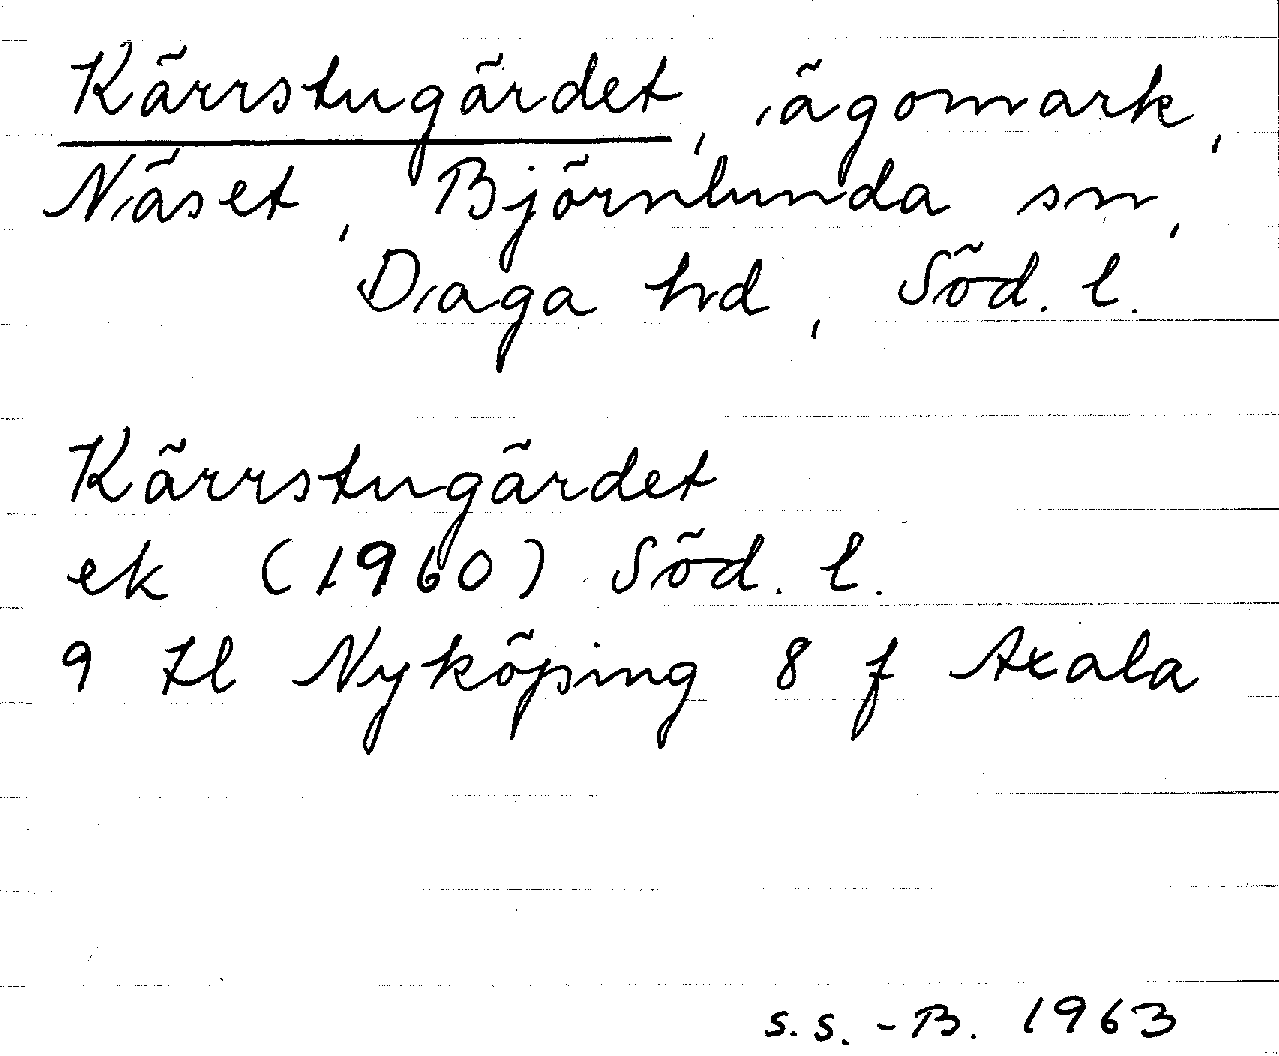 Kärrstugärdet, ägomark,
Näset, Björnlunda sn,
Daga hd, Söd. l.
Kärrstugärdet
ek (1960) Söd. l.
9 Hl Nyköping 8 f Axala
s.s.-B. 1963